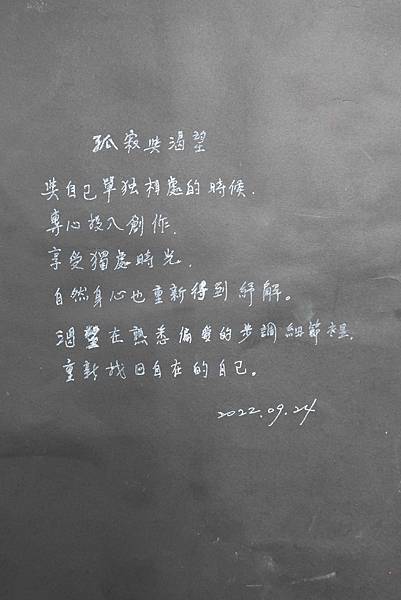 孤寂與渴望
與自己單独相處的時候.
專心投入創作.
享受獨處時光.
自然身心也重新得到紓解。
渴望在熟悉偏愛的步調細節裡.
重新找回自在的自己。
2022.09.24